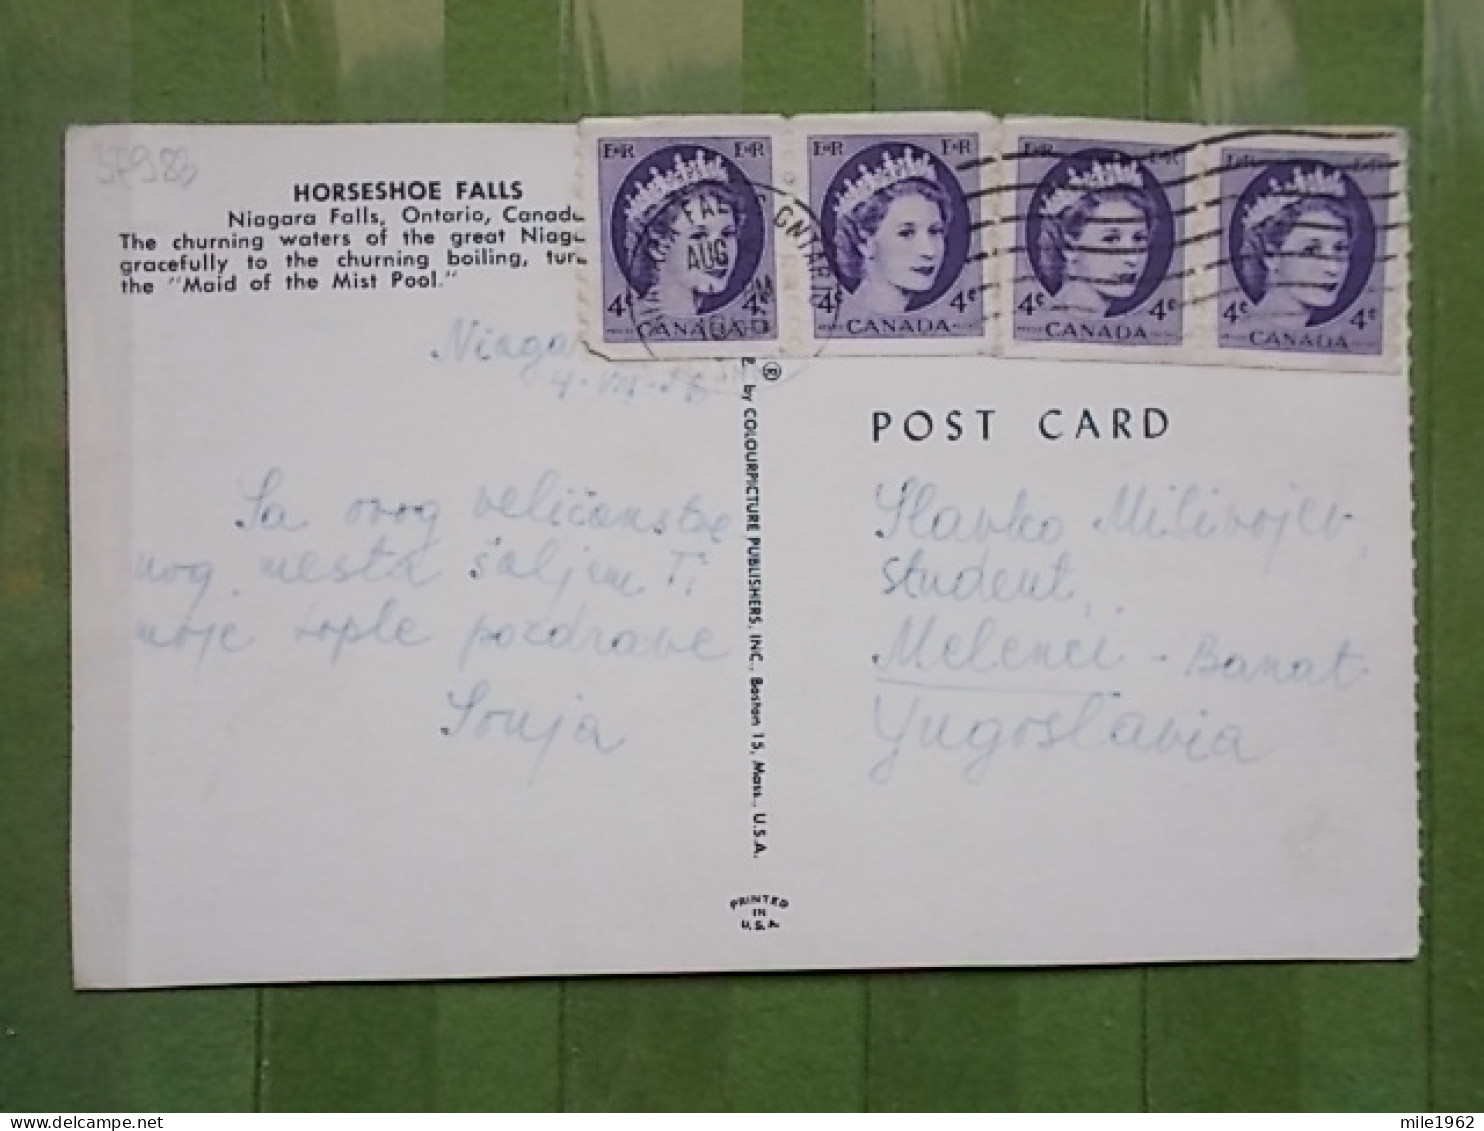 37983
HORSESHOE FALLS
Niagara Falls, Ontario, Canad
The churning waters of the great Niag
gracefully to the churning boiling, tur
the "Maid of the Mist Pool."
E R E R
4¢ 4¢
CANADA
E R E R
4¢ 4¢
CANADA
E R E R
4¢ 4¢
CANADA
E R E R
4¢ 4¢
CANADA
FALLS ONTARIO
AUG
Niaga
4-VIII-
Sa ovog veličanstve
nog mesta šaljem Ti
moje tople pozdrave
Sonja
® by COLOURPICTURE PUBLISHERS, INC., Boston 15, Mass., U.S.A.
PRINTED
IN
U.S.A.
POST CARD
Slavko Milivojev
student,
Melenci - Banat
Yugoslavia
mile1962